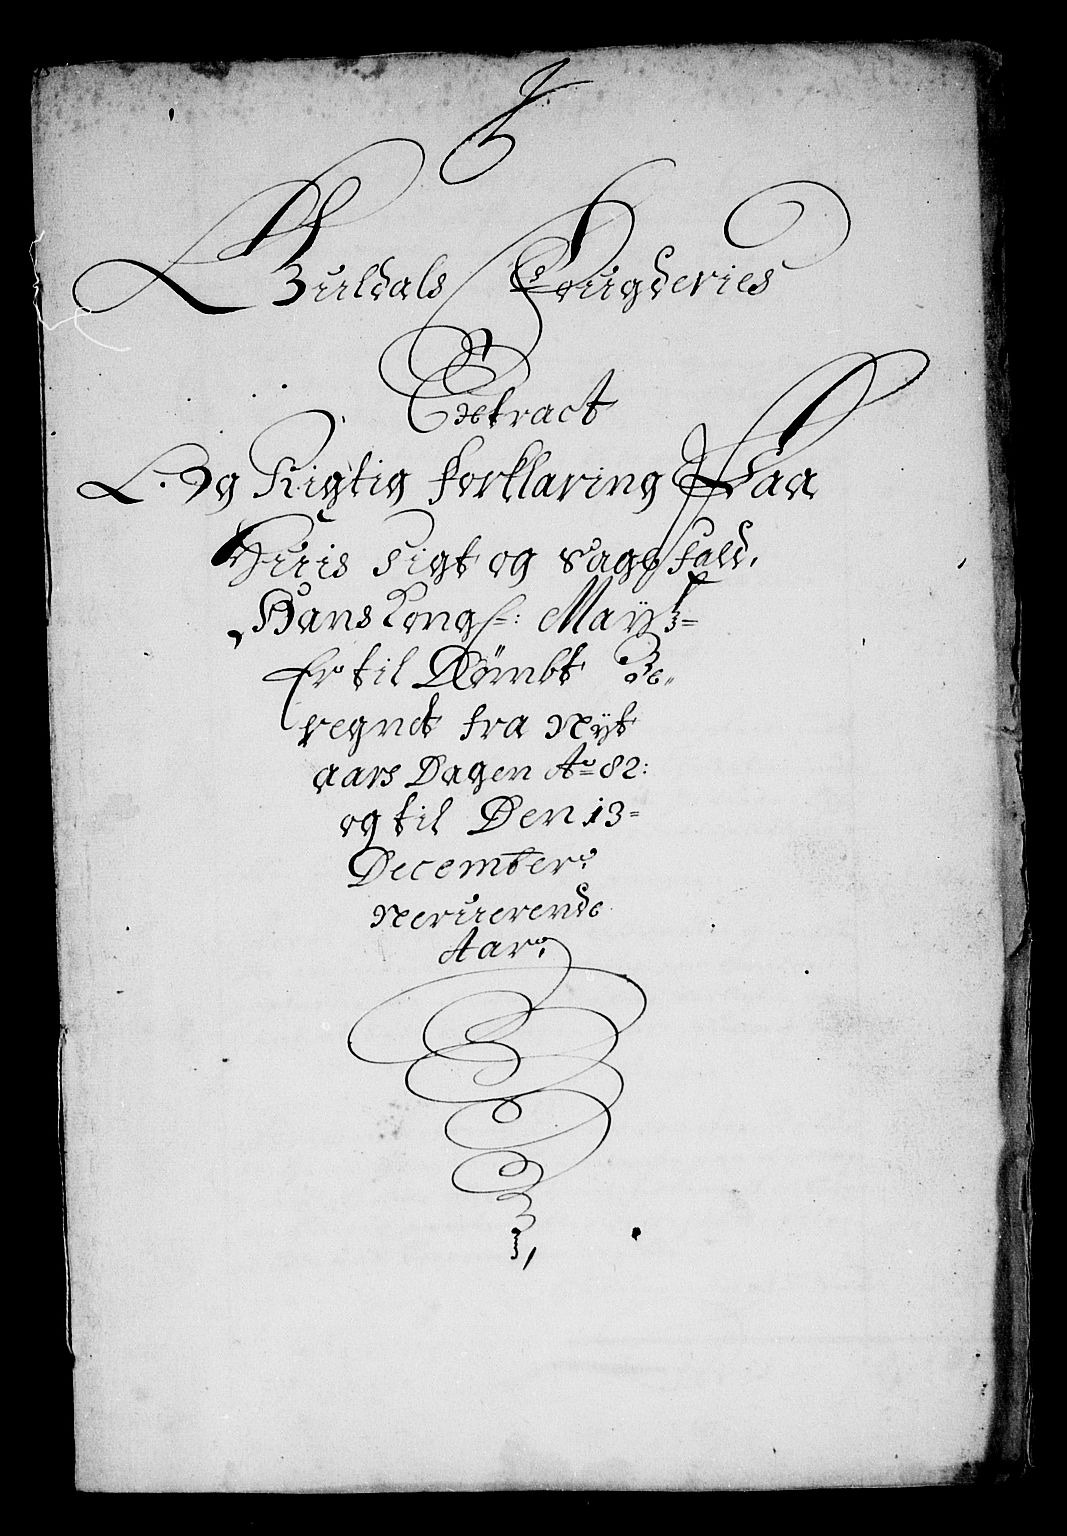 Guldals Fougderies
Extract
Og Rigtig forklaring Paa
Huis Sigt og Sagefald,
Hans Kongl: May:tz
Er til Dømbt Be„
regnet fra Nyt
aars Dagen Ao 82:
og til Den 13=
December:
Nerverende
Aar: